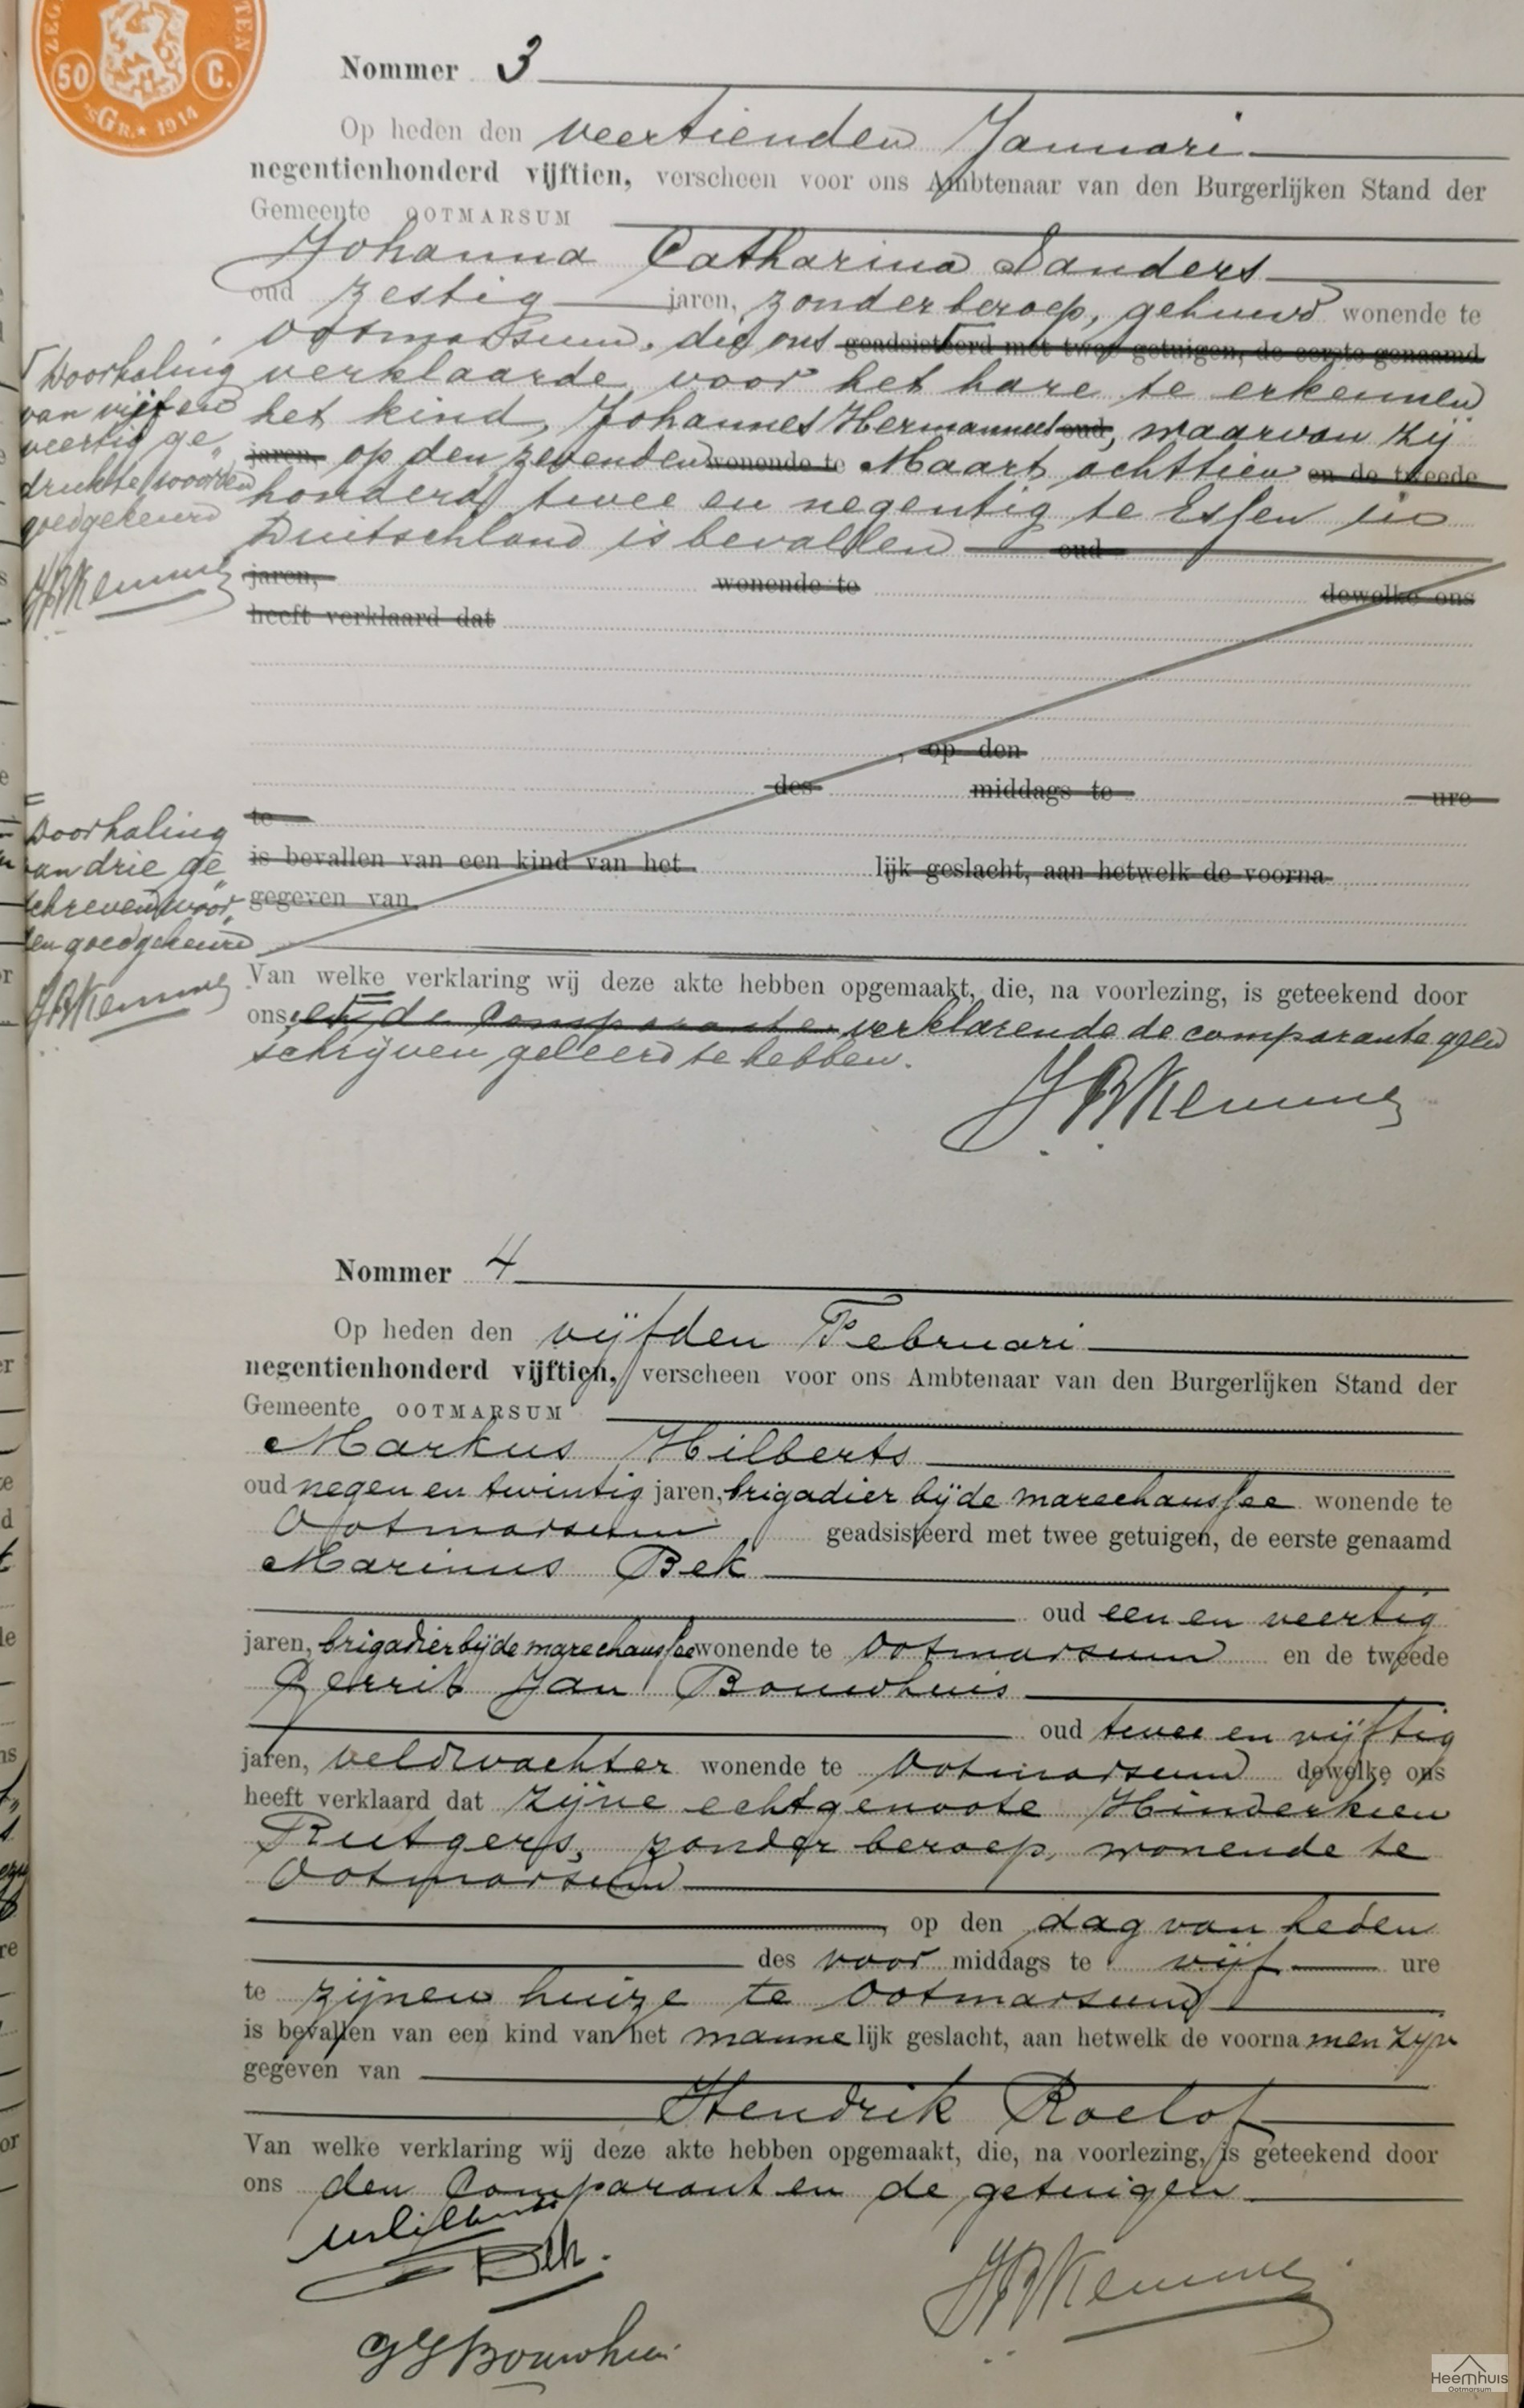 ZEG TEN
50 C.
'sGR. ★ 1914
Nommer 3
Op heden den veertienden Januari
negentienhonderd vijftien, verscheen voor ons Ambtenaar van den Burgerlijken Stand der
Gemeente OOTMARSUM
Johanna Catharina Sanders
oud zestig jaren, zonder beroep, gehuwd wonende te
Ootmarsum, die ons geadsisteerd met twee getuigen, de eerste genaamd
verklaarde voor het hare te erkennen
het kind, Johannes Hermannus oud, waarvan zij
jaren, op den zevenden wonende te Maart achttien en de tweede
honderd twee en negentig te Essen in
Duitschland is bevallen oud
jaren, wonende te dewelke ons
heeft verklaard dat
, op den
des middags te ure
te
is bevallen van een kind van het lijk geslacht, aan hetwelk de voorna
gegeven van
Van welke verklaring wij deze akte hebben opgemaakt, die, na voorlezing, is geteekend door
ons, en de comparante verklarende de comparante geen
schrijven geleerd te hebben.
Doorhaling
van vijf en
veertig ge„
drukte woorden
goedgekeurd
Doorhaling
van drie ge„
schreven woor„
den goedgekeurd
Nommer 4
Op heden den vijfden Februari
negentienhonderd vijftien, verscheen voor ons Ambtenaar van den Burgerlijken Stand der
Gemeente OOTMARSUM
Markus Hilberts
oud negen en twintig jaren, brigadier bij de marechaussee wonende te
Ootmarsum geadsisteerd met twee getuigen, de eerste genaamd
Marinus Bek
oud een en veertig
jaren, brigadier bij de marechaussee wonende te Ootmarsum en de tweede
Gerrit Jan Bouwhuis
oud twee en vijftig
jaren, veldwachter wonende te Ootmarsum dewelke ons
heeft verklaard dat zijne echtgenoote Hinderkien
Rutgers, zonder beroep, wonende te
Ootmarsum
, op den dag van heden
des voor middags te vijf ure
te zijnen huize te Ootmarsum
is bevallen van een kind van het manne lijk geslacht, aan hetwelk de voorna men zijn
gegeven van
Hendrik Roelof
Van welke verklaring wij deze akte hebben opgemaakt, die, na voorlezing, is geteekend door
ons den Comparant en de getuigen
MHilberts
Bek.
GJBouwhuis
Heemhuis
Ootmarsum